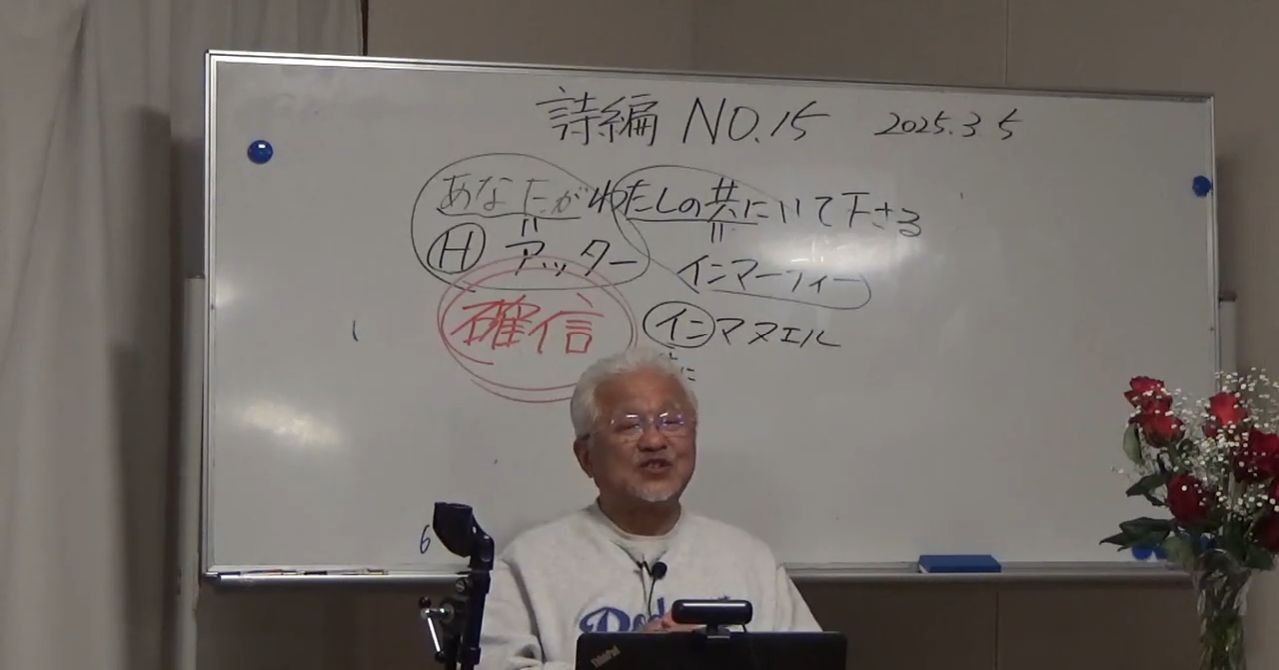 詩編 NO.15 2025.3 5
あなたがわたしの共にいて下さる
〃 〃
H アッター インマーフィー
確信 インマヌエル
に
6
ThinkPad